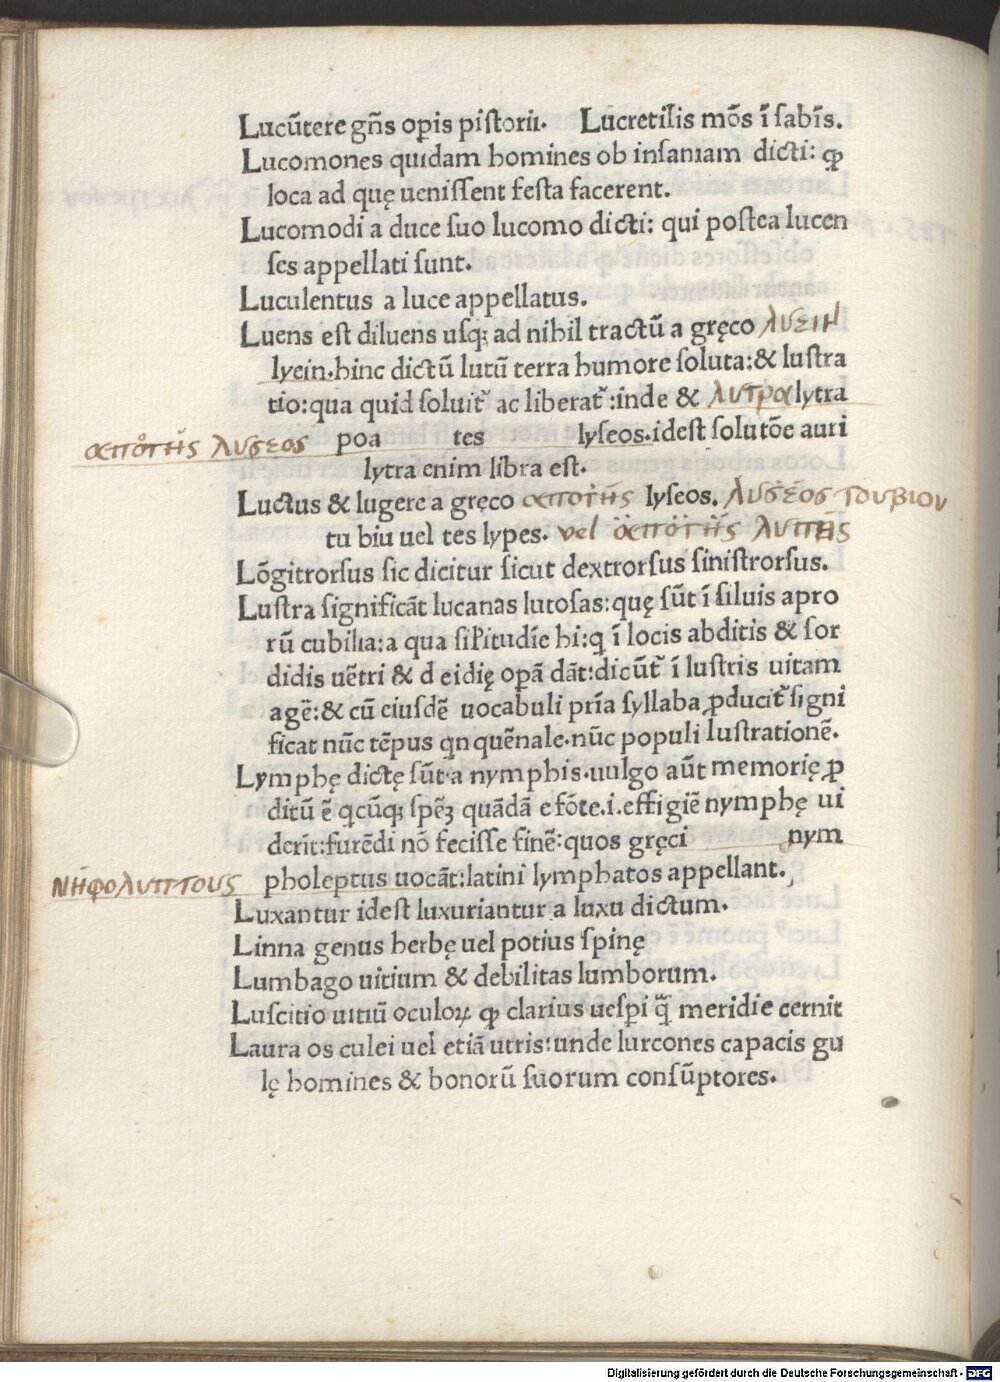 Lucūtere gn̄s opis pistorii. Lucretilis mōs ī sabīs.
Lucomones quidam homines ob insaniam dicti: ꝙ
loca ad quę uenissent festa facerent.
Lucomodi a duce suo lucomo dicti: qui postea lucen
ses appellati sunt.
Luculentus a luce appellatus.
Luens est diluens usq; ad nihil tractū a gręco λυειν
lyein. hinc dictū lutū terra humore soluta: & lustra
tio: qua quid soluit᷑ ac liberat᷑: inde & λυτρα lytra
αποτης λυσεος poa tes lyseos. idest solutōe auri
lytra enim libra est.
Luctus & lugere a gręco αποτης lyseos. λυσεος του βιου
tu biu uel tes lypes. vel αποτης λυπης
Lōgitrorsus sic dicitur sicut dextrorsus sinistrorsus.
Lustra significāt lucanas lutosas: quę sūt ī siluis apro
rū cubilia: a qua sił̄itudīe hi: q̄ ī locis abditis & sor
didis uētri & deidię opā dāt: dicūt᷑ ī lustris uitam
agē: & cū eiusdē uocabuli pr̄ia syllaba ꝓducit᷑ signi
ficat nūc tēpus q̄nquēnale. nūc populi lustrationē.
Lymphę dictę sūt a nymphis. uulgo aūt memorię ꝓ
ditū ē qcūq; spēꝫ quādā e fōte. i. effigiē nymphę ui
derit: furēdi nō fecisse finē: quos gręci nym
νηφολυπτους pholeptus uocāt: latini lymphatos appellant.
Luxantur idest luxuriantur a luxu dictum.
Linna genus herbę uel potius spinę
Lumbago uitium & debilitas lumborum.
Luscitio uitiū oculoꝝ ꝙ clarius uesꝑi q̄ meridie cernit
Laura os culei uel etiā utris: unde lurcones capacis gu
lę homines & bonorū suorum consūptores.
Digitalisierung gefördert durch die Deutsche Forschungsgemeinschaft - DFG